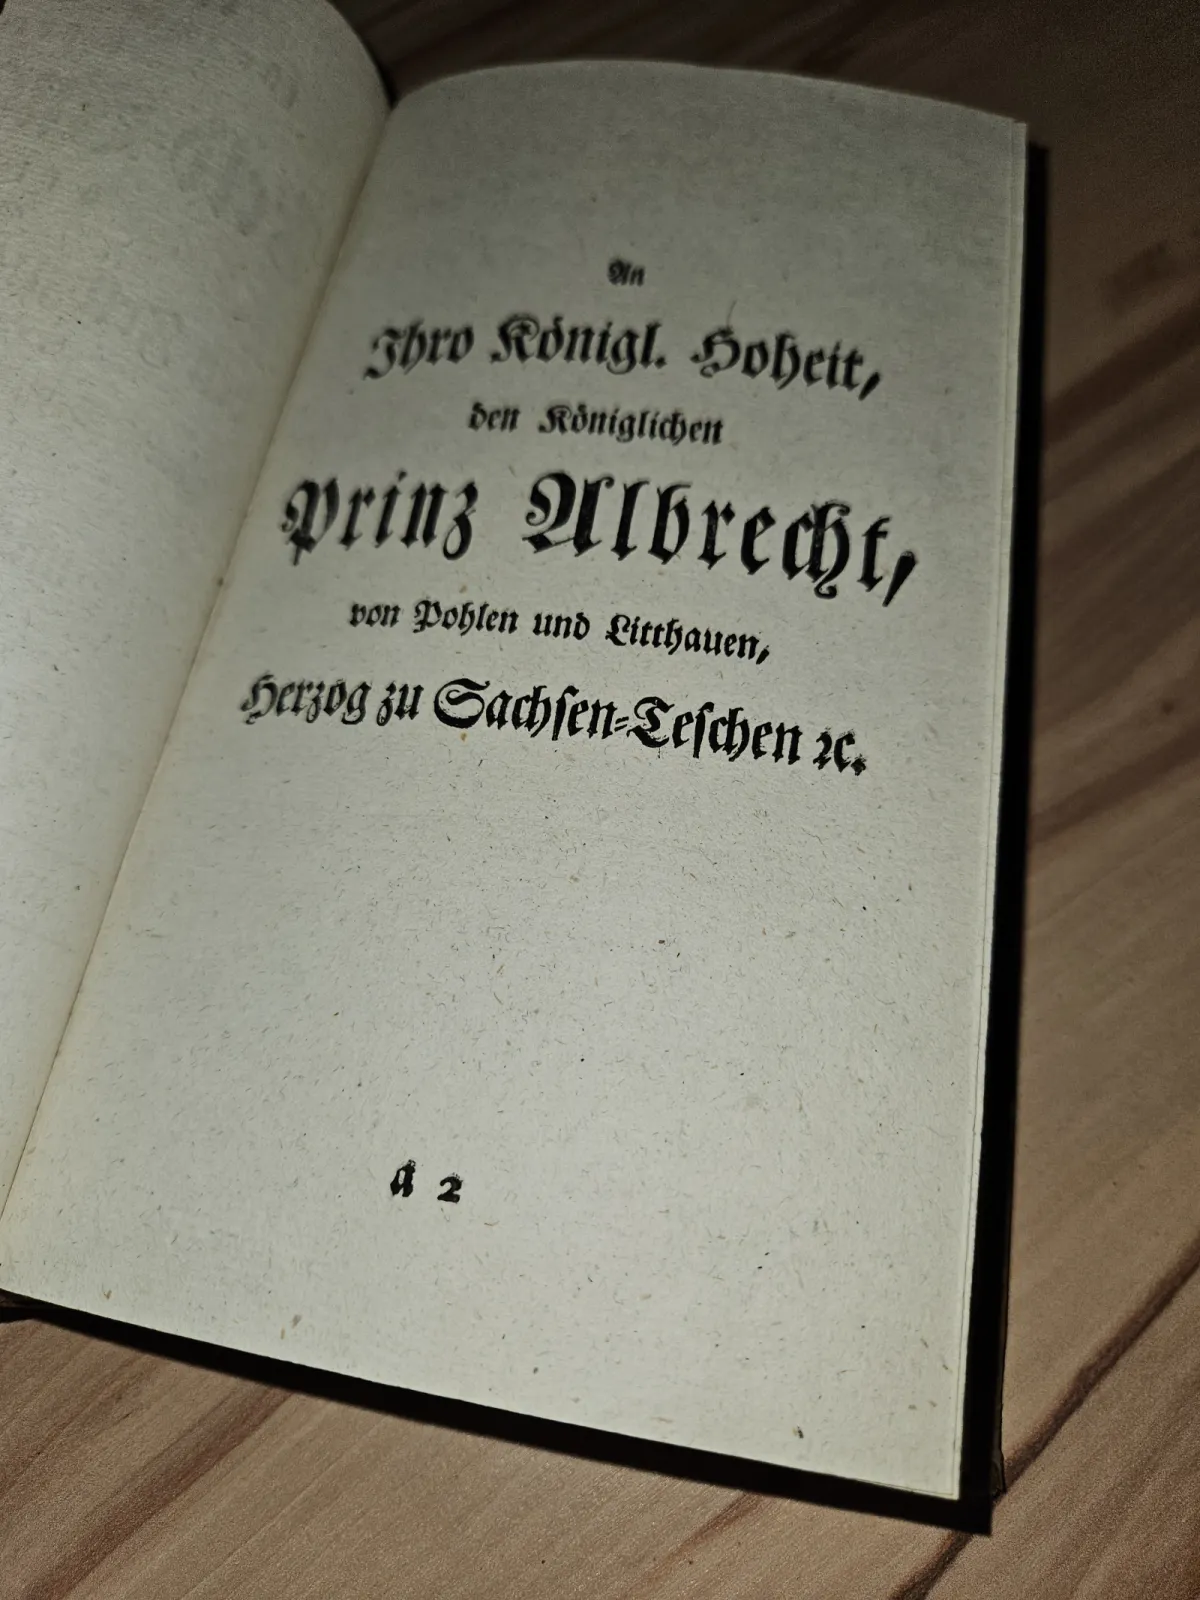 An
Ihro Königl. Hoheit,
den Königlichen
Prinz Albrecht,
von Pohlen und Litthauen,
Herzog zu Sachſen-Teſchen ꝛc.
a 2